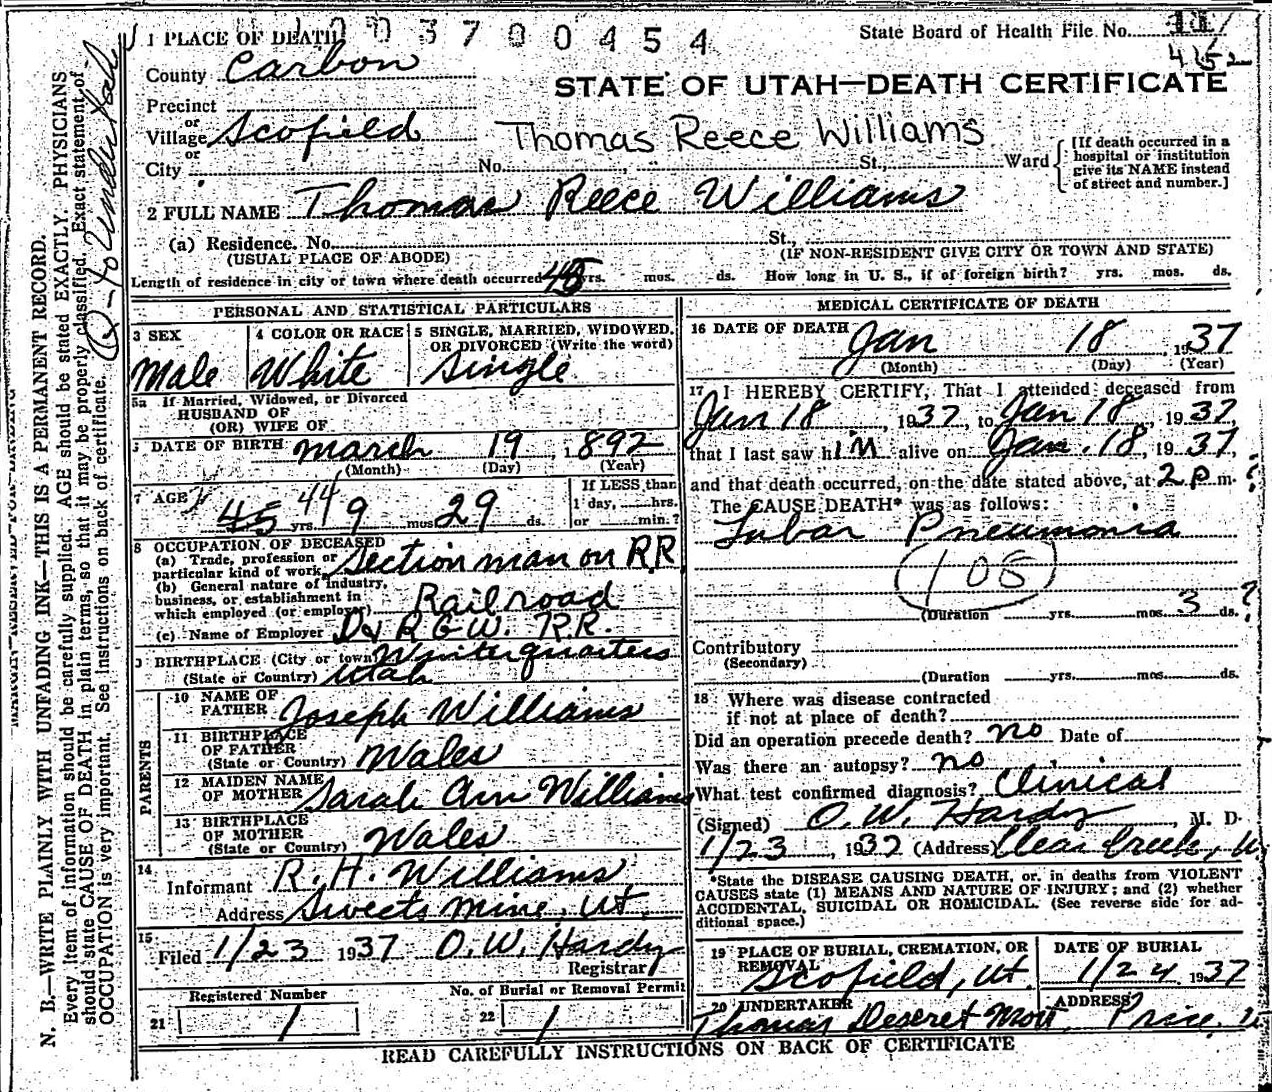 1 PLACE OF DEATH 003700454
State Board of Health File No. 11
4152
County Carbon
STATE OF UTAH—DEATH CERTIFICATE
Precinct
or
Village Scofield
Thomas Reece Williams
or
City No. St., Ward
[If death occurred in a hospital or institution give its NAME instead of street and number.]
2 FULL NAME Thomas Reece Williams
(a) Residence. No. St.,
(USUAL PLACE OF ABODE) (IF NON-RESIDENT GIVE CITY OR TOWN AND STATE)
Length of residence in city or town where death occurred 45 yrs. mos. ds. How long in U. S., if of foreign birth? yrs. mos. ds.
PERSONAL AND STATISTICAL PARTICULARS
3 SEX
Male
4 COLOR OR RACE
White
5 SINGLE, MARRIED, WIDOWED, OR DIVORCED (Write the word)
Single
5a If Married, Widowed, or Divorced
HUSBAND OF
(OR) WIFE OF
DATE OF BIRTH March 19, 1892
(Month) (Day) (Year)
7 AGE 45 44 yrs. 9 mos 29 ds.
If LESS than
1 day, hrs.
or min.?
8 OCCUPATION OF DECEASED
(a) Trade, profession or
particular kind of work Section man on R.R.
(b) General nature of industry,
business, or establishment in
which employed (or employer) Railroad
(c) Name of Employer D & R G W. R.R.
BIRTHPLACE (City or town) Winterquarters
(State or Country) Utah
PARENTS
10 NAME OF
FATHER Joseph Williams
11 BIRTHPLACE
OF FATHER
(State or Country) Wales
12 MAIDEN NAME
OF MOTHER Sarah Ann Williams
13 BIRTHPLACE
OF MOTHER
(State or Country) Wales
14
Informant R. H. Williams
Address Sweets Mine, Ut.
15
Filed 1/23 1937 O. W. Hardy
Registrar
Registered Number
21 1
No. of Burial or Removal Permit
22 1
MEDICAL CERTIFICATE OF DEATH
16 DATE OF DEATH Jan 18, 1937
(Month) (Day) (Year)
17 I HEREBY CERTIFY, That I attended deceased from
Jan 18, 1937, to Jan 18, 1937
that I last saw him alive on Jan. 18, 1937,
and that death occurred, on the date stated above, at 2 p m. ?
The CAUSE DEATH* was as follows:
Lobar Pneumonia
108
(Duration yrs. mos. 3 ds. ?
Contributory
(Secondary)
(Duration yrs. mos. ds.
18 Where was disease contracted
if not at place of death?
Did an operation precede death? no Date of
Was there an autopsy? no
What test confirmed diagnosis? Clinical
(Signed) O. W. Hardy, M. D.
1/23, 1937 (Address) Clear Creek, U
*State the DISEASE CAUSING DEATH, or, in deaths from VIOLENT
CAUSES state (1) MEANS AND NATURE OF INJURY; and (2) whether
ACCIDENTAL, SUICIDAL OR HOMICIDAL. (See reverse side for ad-
ditional space.)
19 PLACE OF BURIAL, CREMATION, OR
REMOVAL
Scofield, Ut.
DATE OF BURIAL
1/24 1937
20 UNDERTAKER
Thomas Deseret Mort.
ADDRESS
Price, U
READ CAREFULLY INSTRUCTIONS ON BACK OF CERTIFICATE
N. B.—WRITE PLAINLY WITH UNFADING INK—THIS IS A PERMANENT RECORD.
Every item of information should be carefully supplied. AGE should be stated EXACTLY. PHYSICIANS
should state CAUSE OF DEATH in plain terms, so that it may be properly classified. Exact statement of
OCCUPATION is very important. See instructions on back of certificate.